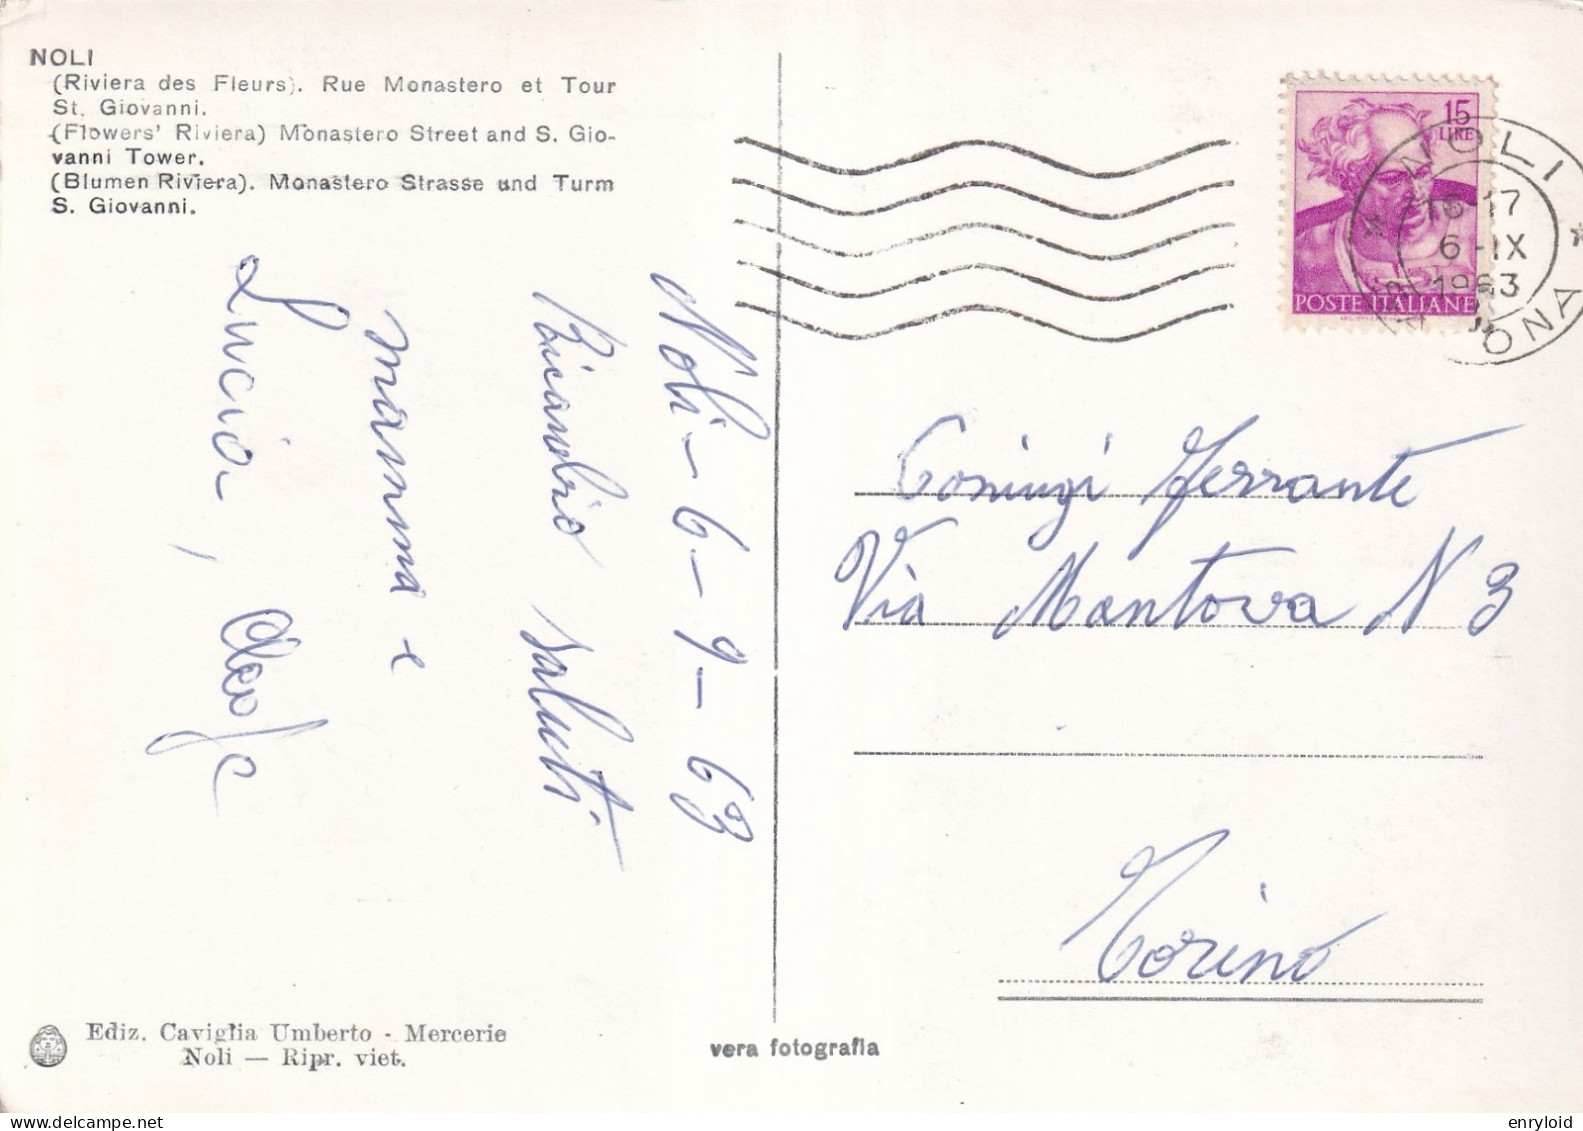 NOLI
(Riviera des Fleurs). Rue Monastero et Tour
St. Giovanni.
(Flowers' Riviera) Monastero Street and S. Gio-
vanni Tower.
(Blumen Riviera). Monastero Strasse und Turm
S. Giovanni.
Noli - 6 - 9 - 63
Ricambio saluti
mamma e
Lucia,
15
LIRE
POSTE ITALIANE
NOLI
16-17
6-IX
1963
Ferrante
Via Mantova N 3
Torino
Ediz. Caviglia Umberto - Mercerie
Noli — Ripr. viet.
vera fotografia
enryloid